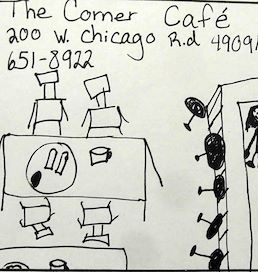 The Corner Café
200 W. Chicago R.d 49091
651-8922